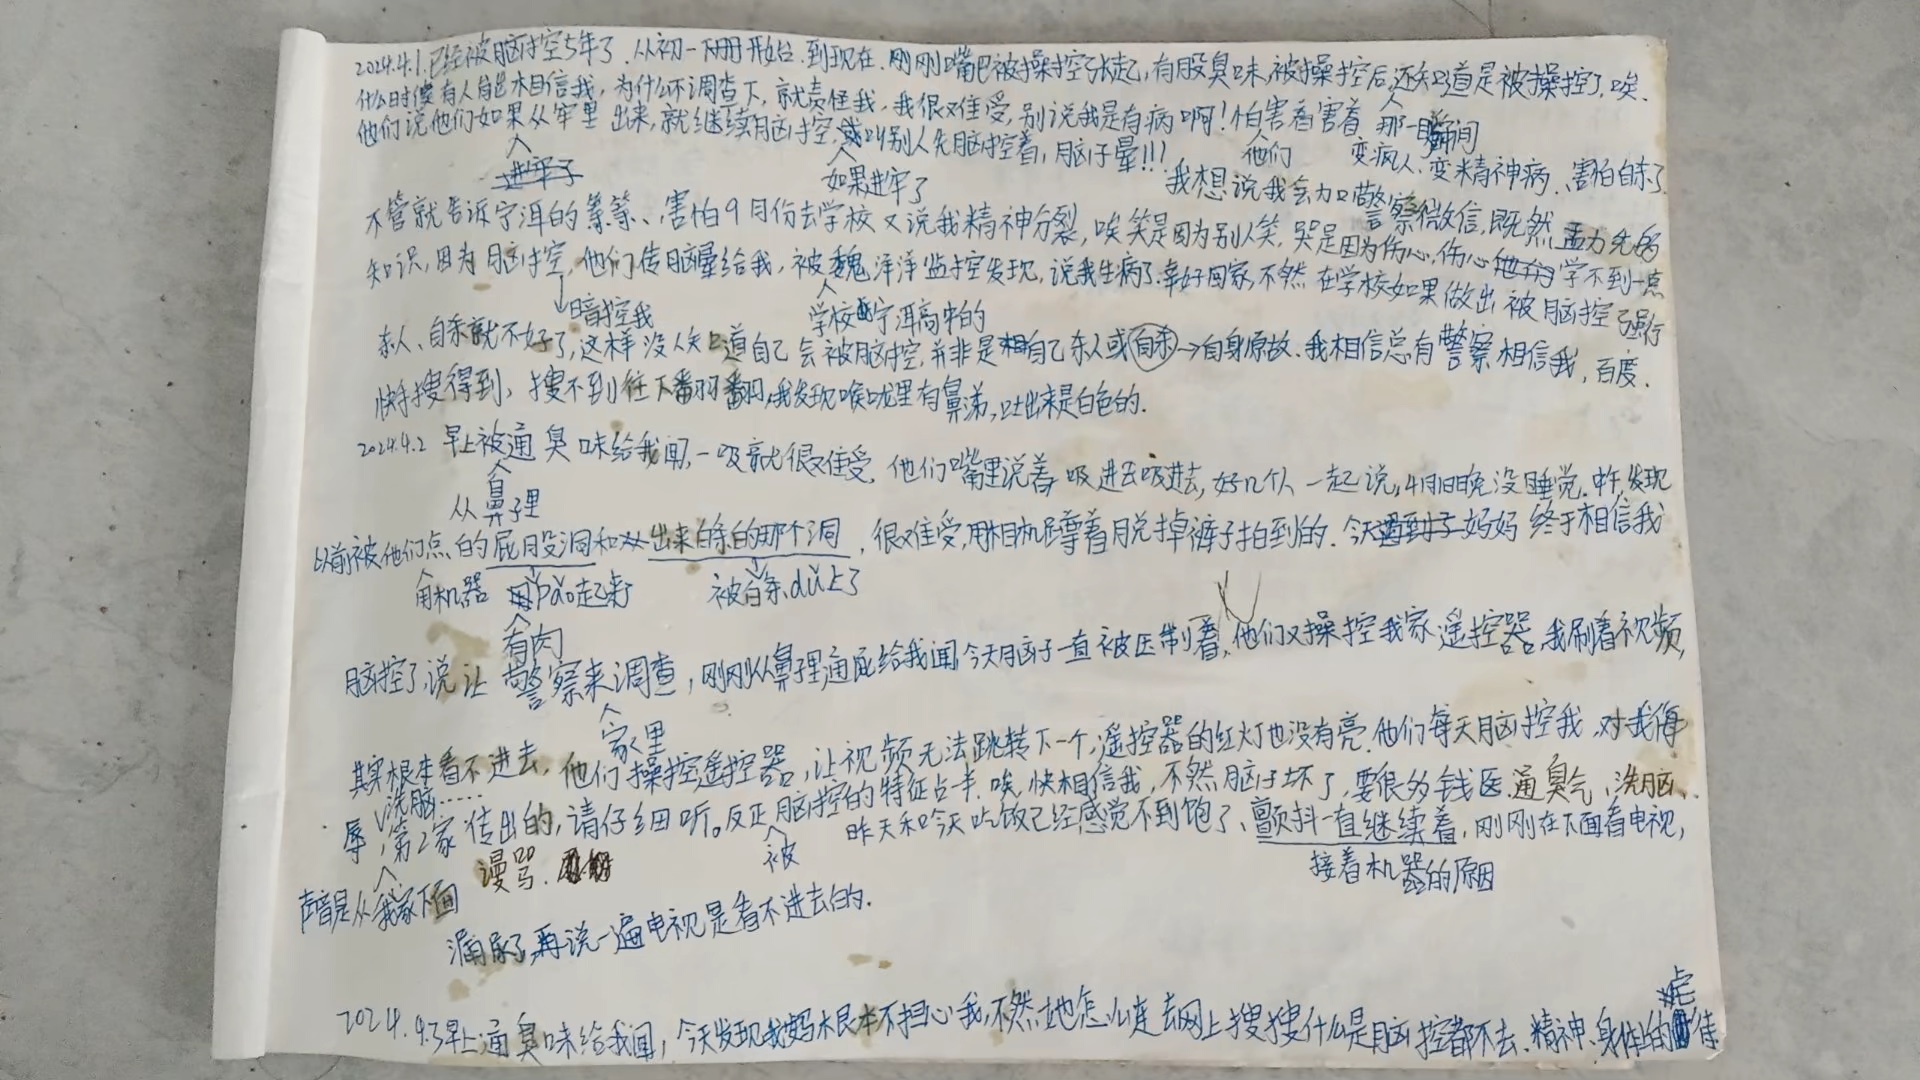 2024.4.1.已经被脑控5年了.从初一下册开始.到现在.刚刚嘴巴被操控张起,有股臭味,被操控后,还知道是被操控了,唉.
什么时候有人能相信我,为什么不调查下,就责怪我,我很难受,别说我是有病啊!怕害着害着 那一瞬间
人
他们说他们如果从牢里出来,就继续脑控,或叫别人先脑控着,脑子晕!!! 他们 变疯人、变精神病、害怕自杀了
进牢子 如果进牢了 我想说我会加警察微信,既然
不管就告诉宁洱的等等、害怕9月份去学校又说我精神分裂,唉笑是因为别人笑,哭是因为伤心,伤心他们学不到一点
知识,因为脑控,他们传脑晕给我,被魏洋洋监控发现,说我生病了.幸好回家,不然在学校如果做出被脑控了
暗控我 学校宁洱高中的
杀人、自杀就不好了,这样没人知道自己会被脑控,并非是自己杀人或自杀→自身原故.我相信总有警察相信我,百度.
快手搜得到,搜不到往下翻翻,我发现喉咙里有鼻涕,吐出来是白色的.
2024.4.2 早上被通臭味给我闻,一吸就很难受,他们嘴里说着吸进去吸进去,好几个人一起说,4月1日晚没睡觉.中午,发现
从鼻子里
以前被他们点的屁股洞和从出来白条的那个洞,很难受,用相机蹲着脱掉裤子拍到的.今天妈妈终于相信我
用机器 pào起来 被白条dǔ上了
有肉
脑控了,说让警察来调查,刚刚从鼻子里通屁给我闻,今天脑子一直被压制着,他们又操控我家遥控器,我刷着视频,
家里
其实根本看不进去,他们操控遥控器,让视频无法跳转下一个,遥控器的红灯也没有亮.他们每天脑控我,对我侮
洗脑……
辱,第2家传出的,请仔细听。反正脑控的特征占半.唉,快相信我,不然脑子坏了,要很多钱医.通臭气、洗脑、
谩骂. 被 昨天和今天吃饭已经感觉不到饱了、颤抖一直继续着,刚刚在下面看电视,
声音是从我家下面 接着机器的原因
漏尿了,再说一遍电视是看不进去的.
2024.4.3早上通臭味给我闻,今天发现我妈根本不担心我,不然她怎么连去网上搜搜什么是脑控都不去、精神、身体上的虐待